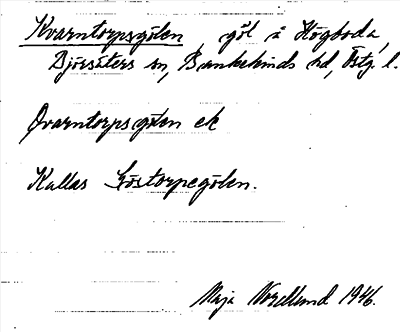 Kvarntorpsgölen, göl å Högboda,
Björsäters sn, Bankekinds hd, Östg. l.
Qvarntorps gölen ek
Kallas Göstorpegölen.
Maja Norellund 1946.